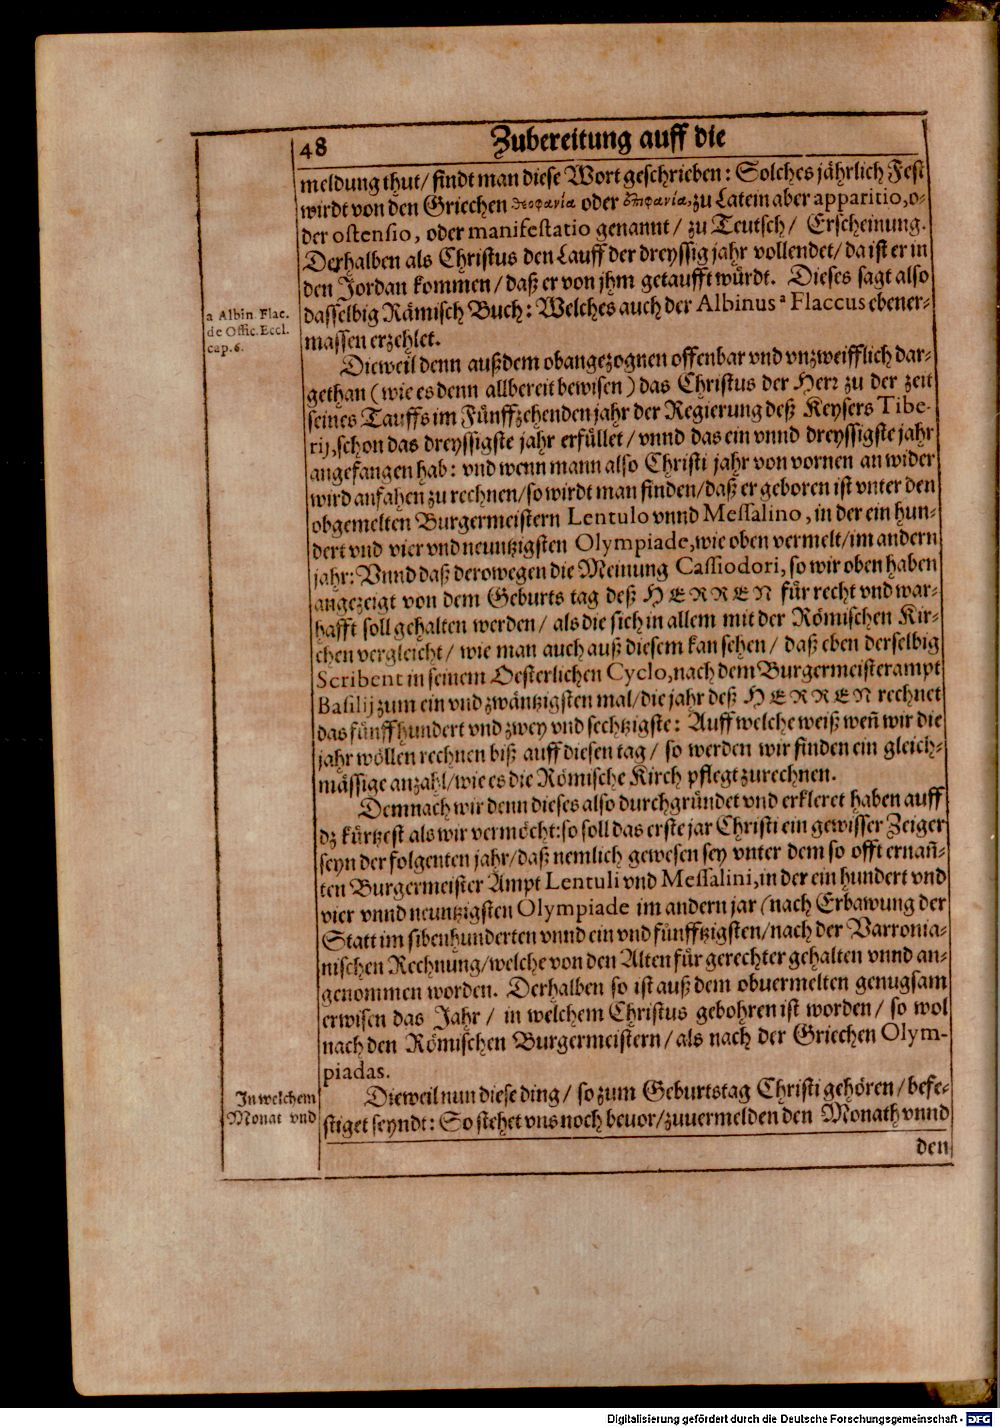 48 Zubereitung auff die
meldung thut/ findt man diese Wort geschrieben: Solches jährlich Fest
wirdt von den Griechen θεοφανία oder ἐπιφανία, zu Latein aber apparitio, o-
der ostensio, oder manifestatio genannt/ zu Teutsch/ Erscheinung.
Derhalben als Christus den Lauff der dreyssig jahr vollendet/ da ist er in
den Jordan kommen/ daß er von jhm getaufft würdt. Dieses sagt also
a Albin. Flac.
de Offic. Eccl.
cap. 6.
dasselbig Römisch Buch: Welches auch der Albinus a Flaccus ebener-
massen erzehlet.
Dieweil denn außdem obangezognen offenbar vnd vnzweifflich dar-
gethan (wie es denn allbereit bewisen) das Christus der Herr zu der zeit
seines Tauffs im Fünffzehenden jahr der Regierung deß Keysers Tibe-
rij, schon das dreyssigste jahr erfüllet/ vnnd das ein vnnd dreyssigste jahr
angefangen hab: vnd wenn mann also Christi jahr von vornen an wider
wird anfahen zu rechnen/ so wirdt man finden/ daß er geboren ist vnter den
obgemelten Burgermeistern Lentulo vnnd Messalino, in der ein hun-
dert vnd vier vnd neuntzigsten Olympiade, wie oben vermelt/ im andern
jahr: Vnnd daß derowegen die Meinung Cassiodori, so wir oben haben
angezeigt von dem Geburts tag deß HERREN für recht vnd war-
hafft soll gehalten werden/ als die sich in allem mit der Römischen Kir-
chen vergleicht/ wie man auch auß diesem kan sehen/ daß eben derselbig
Scribent in seinem Oesterlichen Cyclo, nach dem Burgermeisterampt
Basilij zum ein vnd zwäntzigsten mal/ die jahr deß HERREN rechnet
das fünffhundert vnd zwey vnd sechtzigste: Auff welche weiß weñ wir die
jahr wöllen rechnen biß auff diesen tag/ so werden wir finden ein gleich-
mässige anzahl/ wie es die Römische Kirch pflegt zurechnen.
Demnach wir denn dieses also durchgründet vnd erkleret haben auff
dz kürtzest als wir vermöcht: so soll das erste jar Christi ein gewisser Zeiger
seyn der folgenten jahr/ daß nemlich gewesen sey vnter dem so offt ernañ-
ten Burgermeister Ampt Lentuli vnd Messalini, in der ein hundert vnd
vier vnnd neuntzigsten Olympiade im andern jar/ nach Erbawung der
Statt im sibenhunderten vnnd ein vnd fünfftzigsten/ nach der Varronia-
nischen Rechnung/ welche von den Alten für gerechter gehalten vnnd an-
genommen worden. Derhalben so ist auß dem obuermelten genugsam
erwisen das Jahr/ in welchem Christus gebohren ist worden/ so wol
nach den Römischen Burgermeistern/ als nach der Griechen Olym-
piadas.
In welchem
Monat vnd
Dieweil nun diese ding/ so zum Geburtstag Christi gehören/ befe-
stiget seyndt: So stehet vns noch beuor/ zuuermelden den Monath vnnd
den
Digitalisierung gefördert durch die Deutsche Forschungsgemeinschaft - DFG